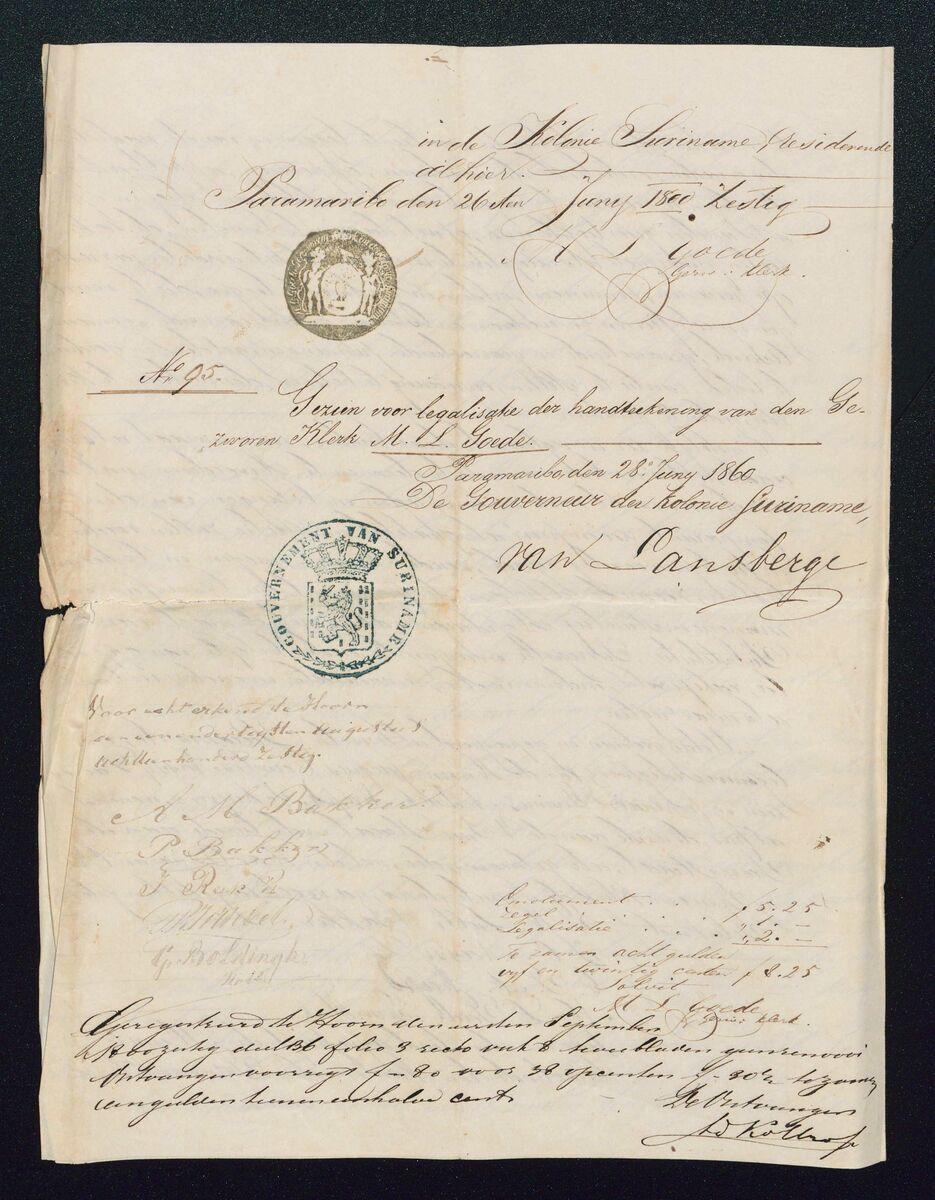 in de Kolonie Suriname, residerende
alhier.
Paramaribo den 26sten Juny 1800 Zestig
M L Goede
Gezw: Klerk.
No 95.
Gezien voor legalisatie der handteekening van den Ge-
zworen Klerk M. L. Goede.
Paramaribo, den 28e Juny 1860
De Gouverneur der kolonie Suriname,
van Lansberge
GOUVERNEMENT VAN SURINAME
Voor echt erkend te Hoorn
den eenendertigsten augustus
achttienhonderd Zestig.
A M Bakker
P Bakker
G. Boldingh
Emolument . . . ƒ 5.25
Zegel . . . „ 1. –
Legalisatie . . . „ 2. –
te zamen acht gulden
vyf en twintig centen ƒ 8.25
Solvit
M L Goede
Gezw: Klerk.
Geregistreerd te Hoorn den eersten September
deel 36 folio 3 recto vak 8 twee bladen geen renvooi
Ontvangen voor regt ƒ – 80 voor 38 opcenten ƒ – 30½ te zamen
een gulden tienen een halve cent
De Ontvanger